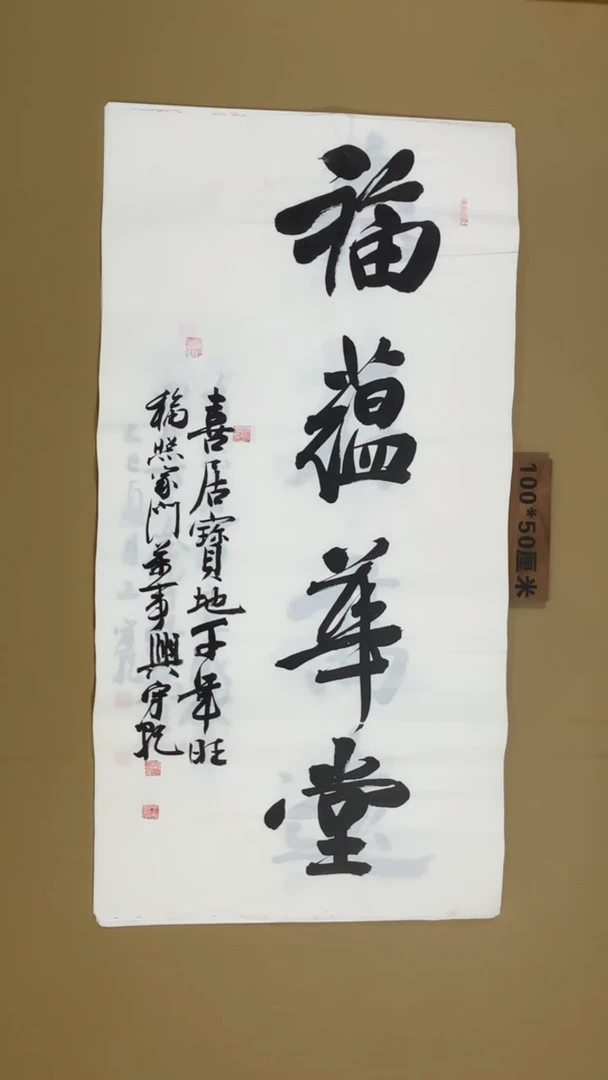 福蘊華堂
喜居寶地千年旺
福照家門萬事興守乾
100*50厘米